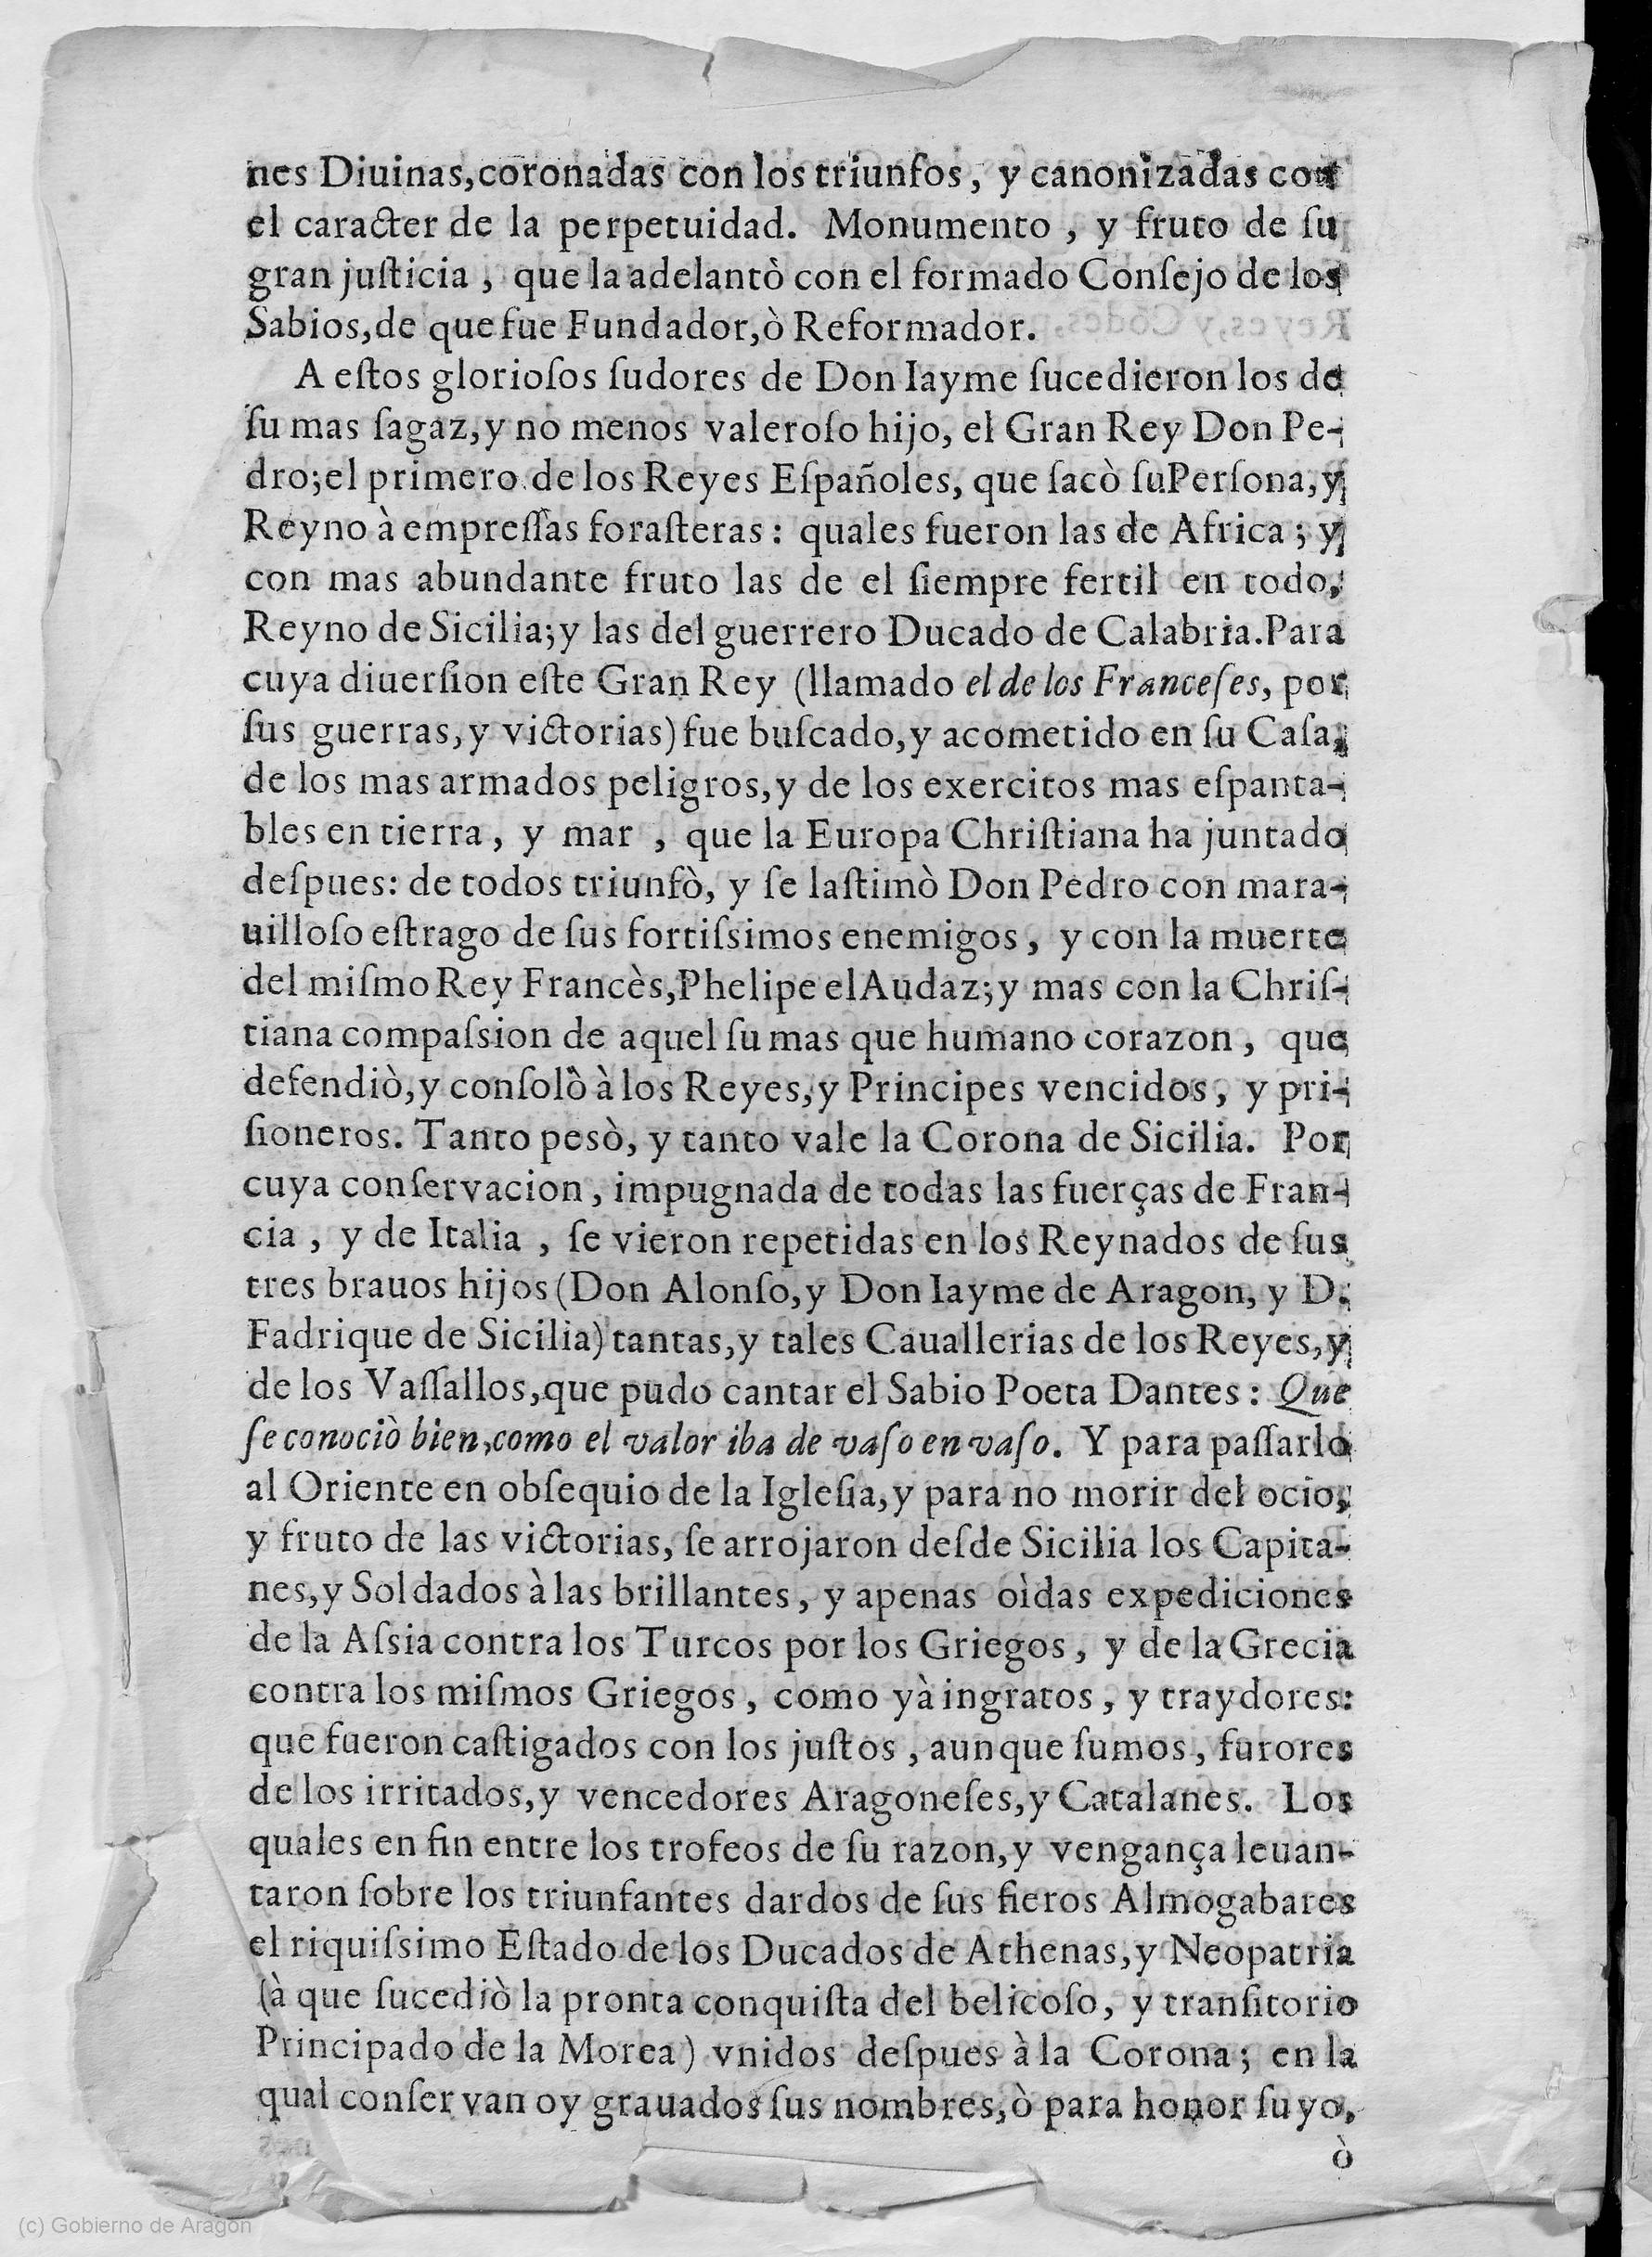 nes Diuinas,coronadas con los triunfos, y canonizadas con
el caracter de la perpetuidad. Monumento , y fruto de ſu
gran juſticia , que la adelantò con el formado Conſejo de los
Sabios,de que fue Fundador,ò Reformador.
A eſtos glorioſos ſudores de Don Iayme ſucedieron los de
ſu mas ſagaz,y no menos valeroſo hijo, el Gran Rey Don Pe-
dro;el primero de los Reyes Eſpañoles, que ſacò ſuPerſona,y
Reyno à empreſſas foraſteras : quales fueron las de Africa ; y
con mas abundante fruto las de el ſiempre fertil en todo,
Reyno de Sicilia;y las del guerrero Ducado de Calabria.Para
cuya diuerſion eſte Gran Rey (llamado el de los Franceſes, por
ſus guerras,y victorias) fue buſcado,y acometido en ſu Caſa,
de los mas armados peligros,y de los exercitos mas eſpanta-
bles en tierra , y mar , que la Europa Chriſtiana ha juntado
deſpues: de todos triunfò, y ſe laſtimò Don Pedro con mara-
uilloſo eſtrago de ſus fortiſsimos enemigos , y con la muerte
del miſmo Rey Francès,Phelipe el Audaz;y mas con la Chriſ-
tiana compaſsion de aquel ſu mas que humano corazon , que
defendiò,y conſolò à los Reyes,y Principes vencidos, y pri-
ſioneros. Tanto pesò, y tanto vale la Corona de Sicilia. Por
cuya conſervacion , impugnada de todas las fuerças de Fran-
cia , y de Italia , ſe vieron repetidas en los Reynados de ſus
tres brauos hijos (Don Alonſo,y Don Iayme de Aragon, y D.
Fadrique de Sicilia) tantas,y tales Cauallerias de los Reyes,y
de los Vaſſallos,que pudo cantar el Sabio Poeta Dantes : Que
ſe conociò bien,como el valor iba de vaſo en vaſo. Y para paſſarlo
al Oriente en obſequio de la Igleſia,y para no morir del ocio,
y fruto de las victorias, ſe arrojaron deſde Sicilia los Capita-
nes,y Soldados à las brillantes , y apenas oìdas expediciones
de la Aſsia contra los Turcos por los Griegos , y de la Grecia
contra los miſmos Griegos , como yà ingratos , y traydores:
que fueron caſtigados con los juſtos , aunque ſumos , furores
de los irritados,y vencedores Aragoneſes,y Catalanes. Los
quales en fin entre los trofeos de ſu razon,y vengança leuan-
taron ſobre los triunfantes dardos de ſus fieros Almogabares
el riquiſsimo Eſtado de los Ducados de Athenas,y Neopatria
(à que ſucediò la pronta conquiſta del belicoſo, y tranſitorio
Principado de la Morea) vnidos deſpues à la Corona ; en la
qual conſervan oy grauados ſus nombres,ò para honor ſuyo,
ò
(c) Gobierno de Aragón